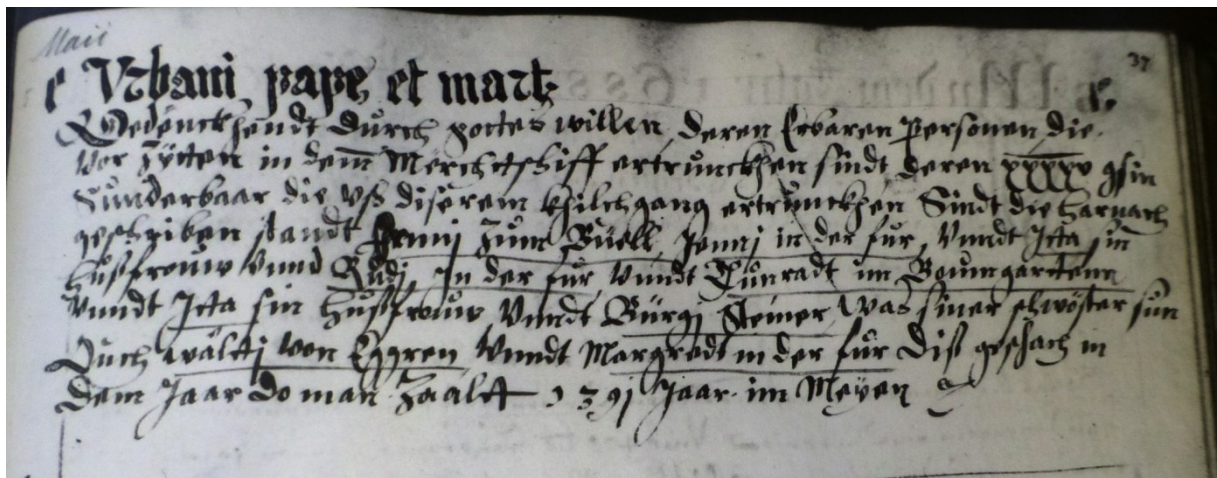 Maii
37
c Vrbani pape et mart
c.
Gedenckhendt durch gottes willen, deren Erbaren Personen, die
vor Zÿtten in dem Merchtschiff ertrunckhen sindt deren xxxxv gsin
Sunderbaar die vß diserem khilchgang ertrunckhen Sindt die harnach
geschriben standt Jenni Zum Büell, Jenni in der fur, Vnndt Jtta sin
hußfrouw Vnnd Rudj, Jn der fur Vnndt Cunradt im Boumgartten
Vnndt Jtta sin hußfrouw Vnndt Bürgj Steiner was siner schwöster sun
Ouch wältj von Eggren Vnndt Margredt in der fur Diß geschach in
dem Jaar do man Zaalt 1391 Jaar im Meÿen